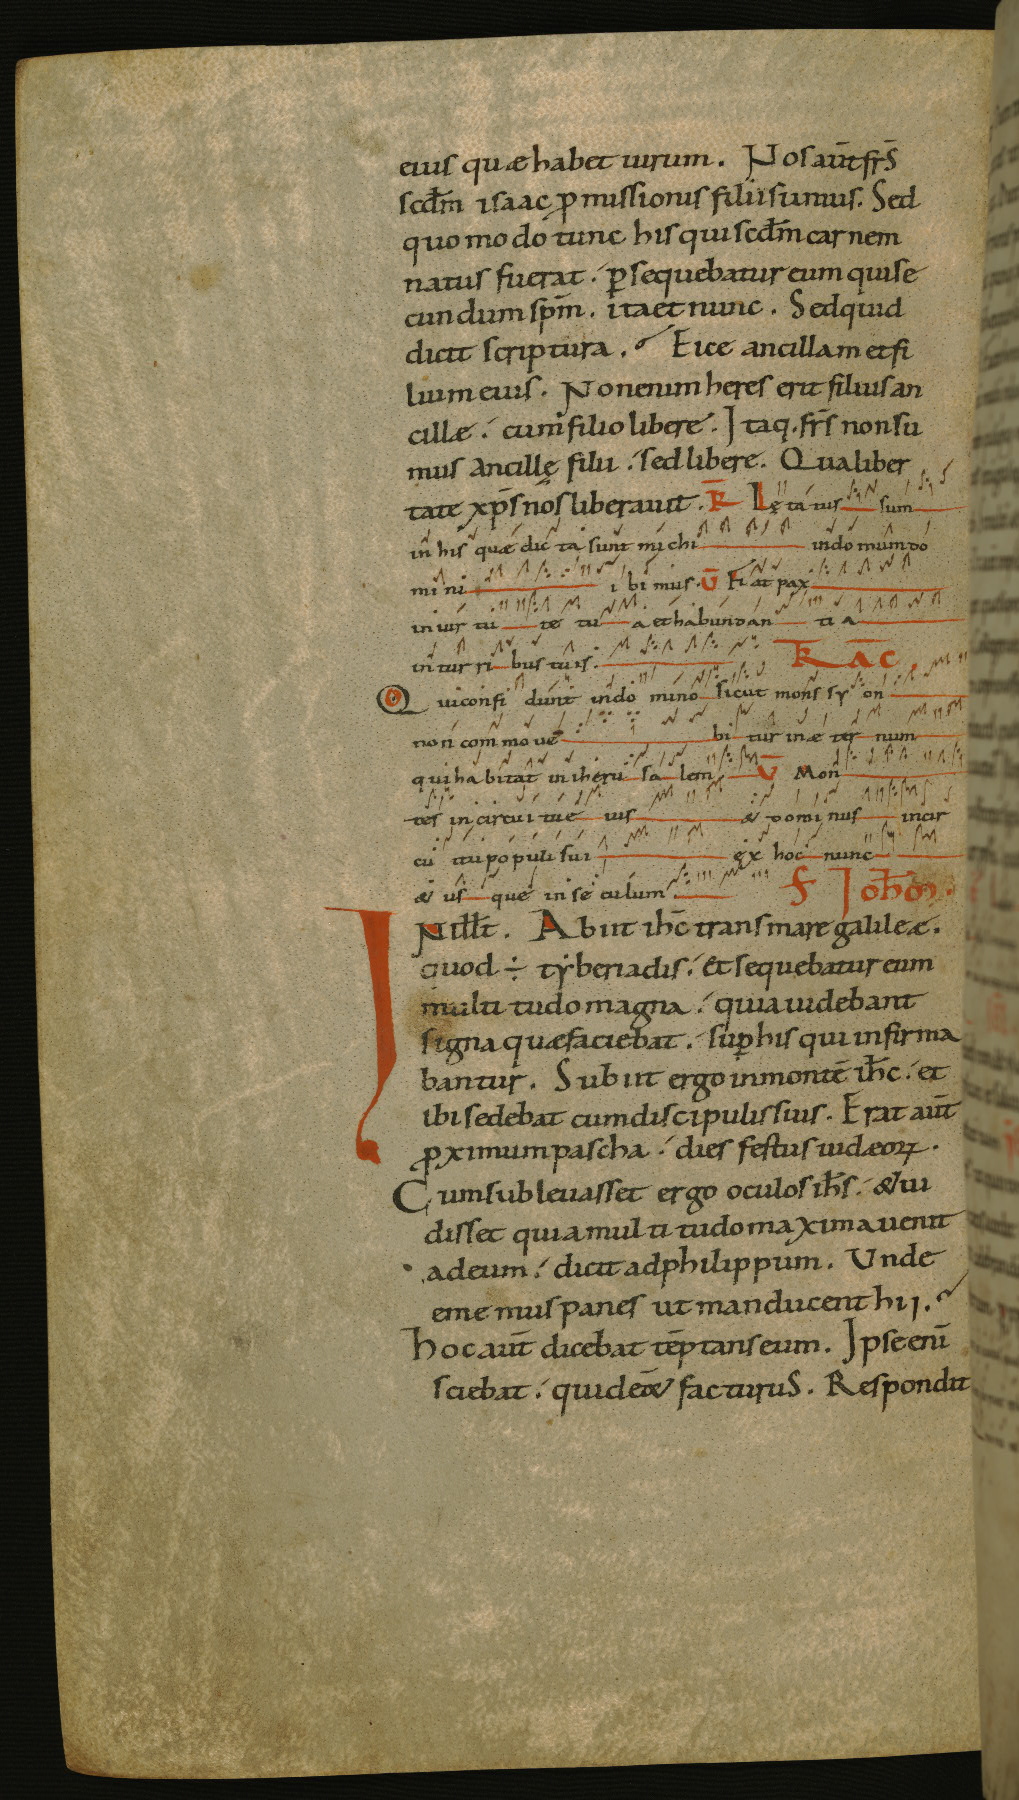 eius quæ habet uirum. Nos aut̄ fr̄s
scd̄m isaac ꝓmissionis filii sumus. Sed
quomodo tunc his qui scd̄m carnem
natus fuerat. ꝑsequebatur eum qui se
cundum sp̄m. ita et nunc. Sed quid
dicit scriptura. Eice ancillam et fi
lium eius. Non enim heres erit filius an
cillæ. cum filio liberę. Itaq. fr̄s non su
mus ancillę filii. sed libere. Qua liber
tate xp̄s nos liberauit. R̄ Lętatus sum
in his quæ dicta sunt michi in domum do
mini ibimus. V̄ Fiat pax
in uirtute tua et habundantia
in turribus tuis. TRAC̄
Qui confidunt in domino sicut mons syon
non commouebitur in æternum
qui habitat in iherusalem V̄ Mon
tes in circuitu eius & dominus in cir
cuitu populi sui ex hoc nunc
& usque in seculum. S Ioh̄m.
IN ill̄ t̄. Abiit ih̄c trans mare galileæ.
quod ÷ tyberiadis. Et sequebatur eum
multitudo magna. quia uidebant
signa quæ faciebat. suꝑ his qui infirma
bantur. Subiit ergo in montē ih̄c. et
ibi sedebat cum discipulis suis. Erat aut̄
ꝓximum pascha. dies festus iudæoꝝ.
Cum subleuasset ergo oculos ih̄s. & ui
disset quia multitudo maxima uenit
ad eum. dicit ad philippum. Unde
ememus panes ut manducent hii.
Hoc aut̄ dicebat tēptans eum. Ipse eni̅
sciebat. quid e̅e̅t facturus. Respondit